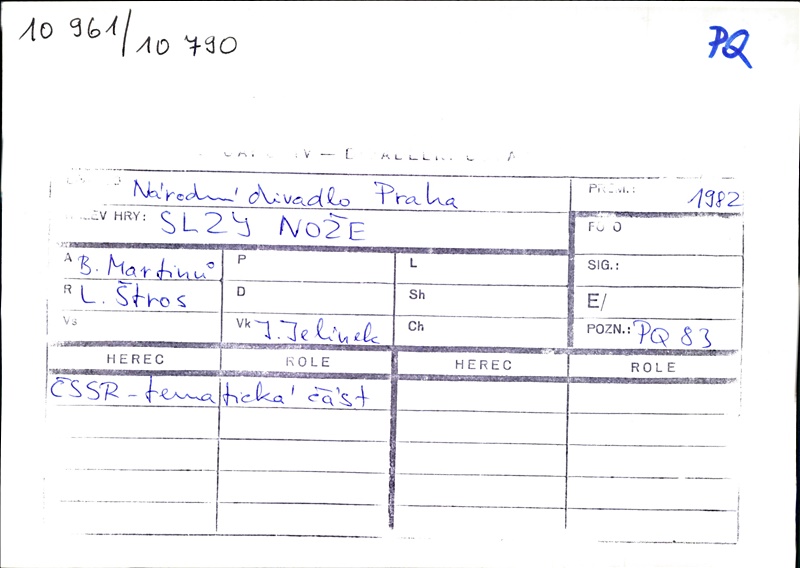 10 961/10 790
PQ
Národní divadlo Praha
PREM.: 1982
EV HRY: SLZY NOŽE
A B. Martinů P L SIG.:
R L. Štros D Sh E/
Vs Vk J. Jelínek Ch POZN.: PQ 83
HEREC ROLE HEREC ROLE
ČSSR - tematická část